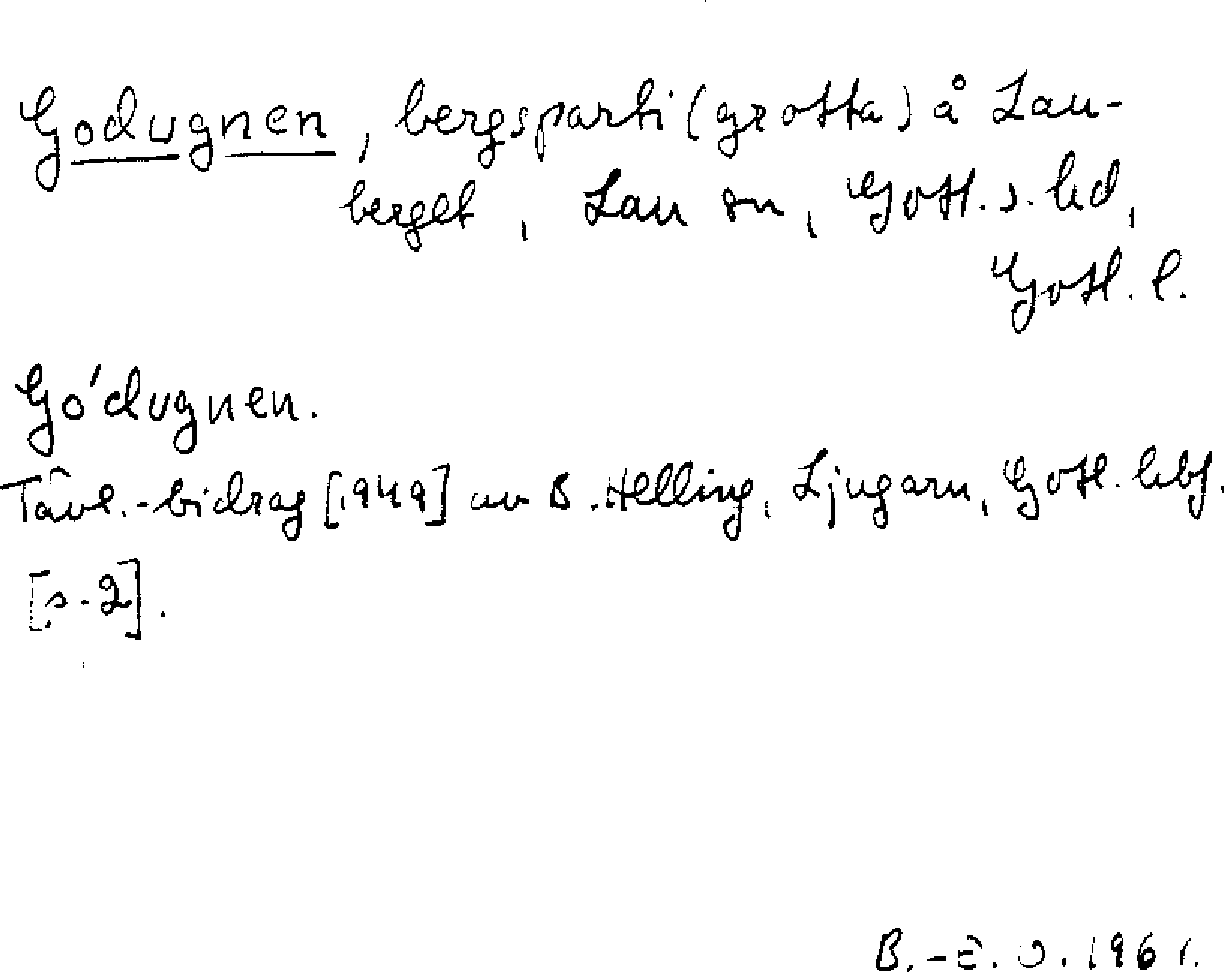 Godugnen, bergsparti (grotta) å Lau-
berget, Lau sn, Gotl. s. hd,
Gotl. l.
Go´dugnen.
Tävl.-bidrag [1949] av B. Helling, Ljugarn, Gotl. hbf.
[s. 2].
B.-E. O. 1961.